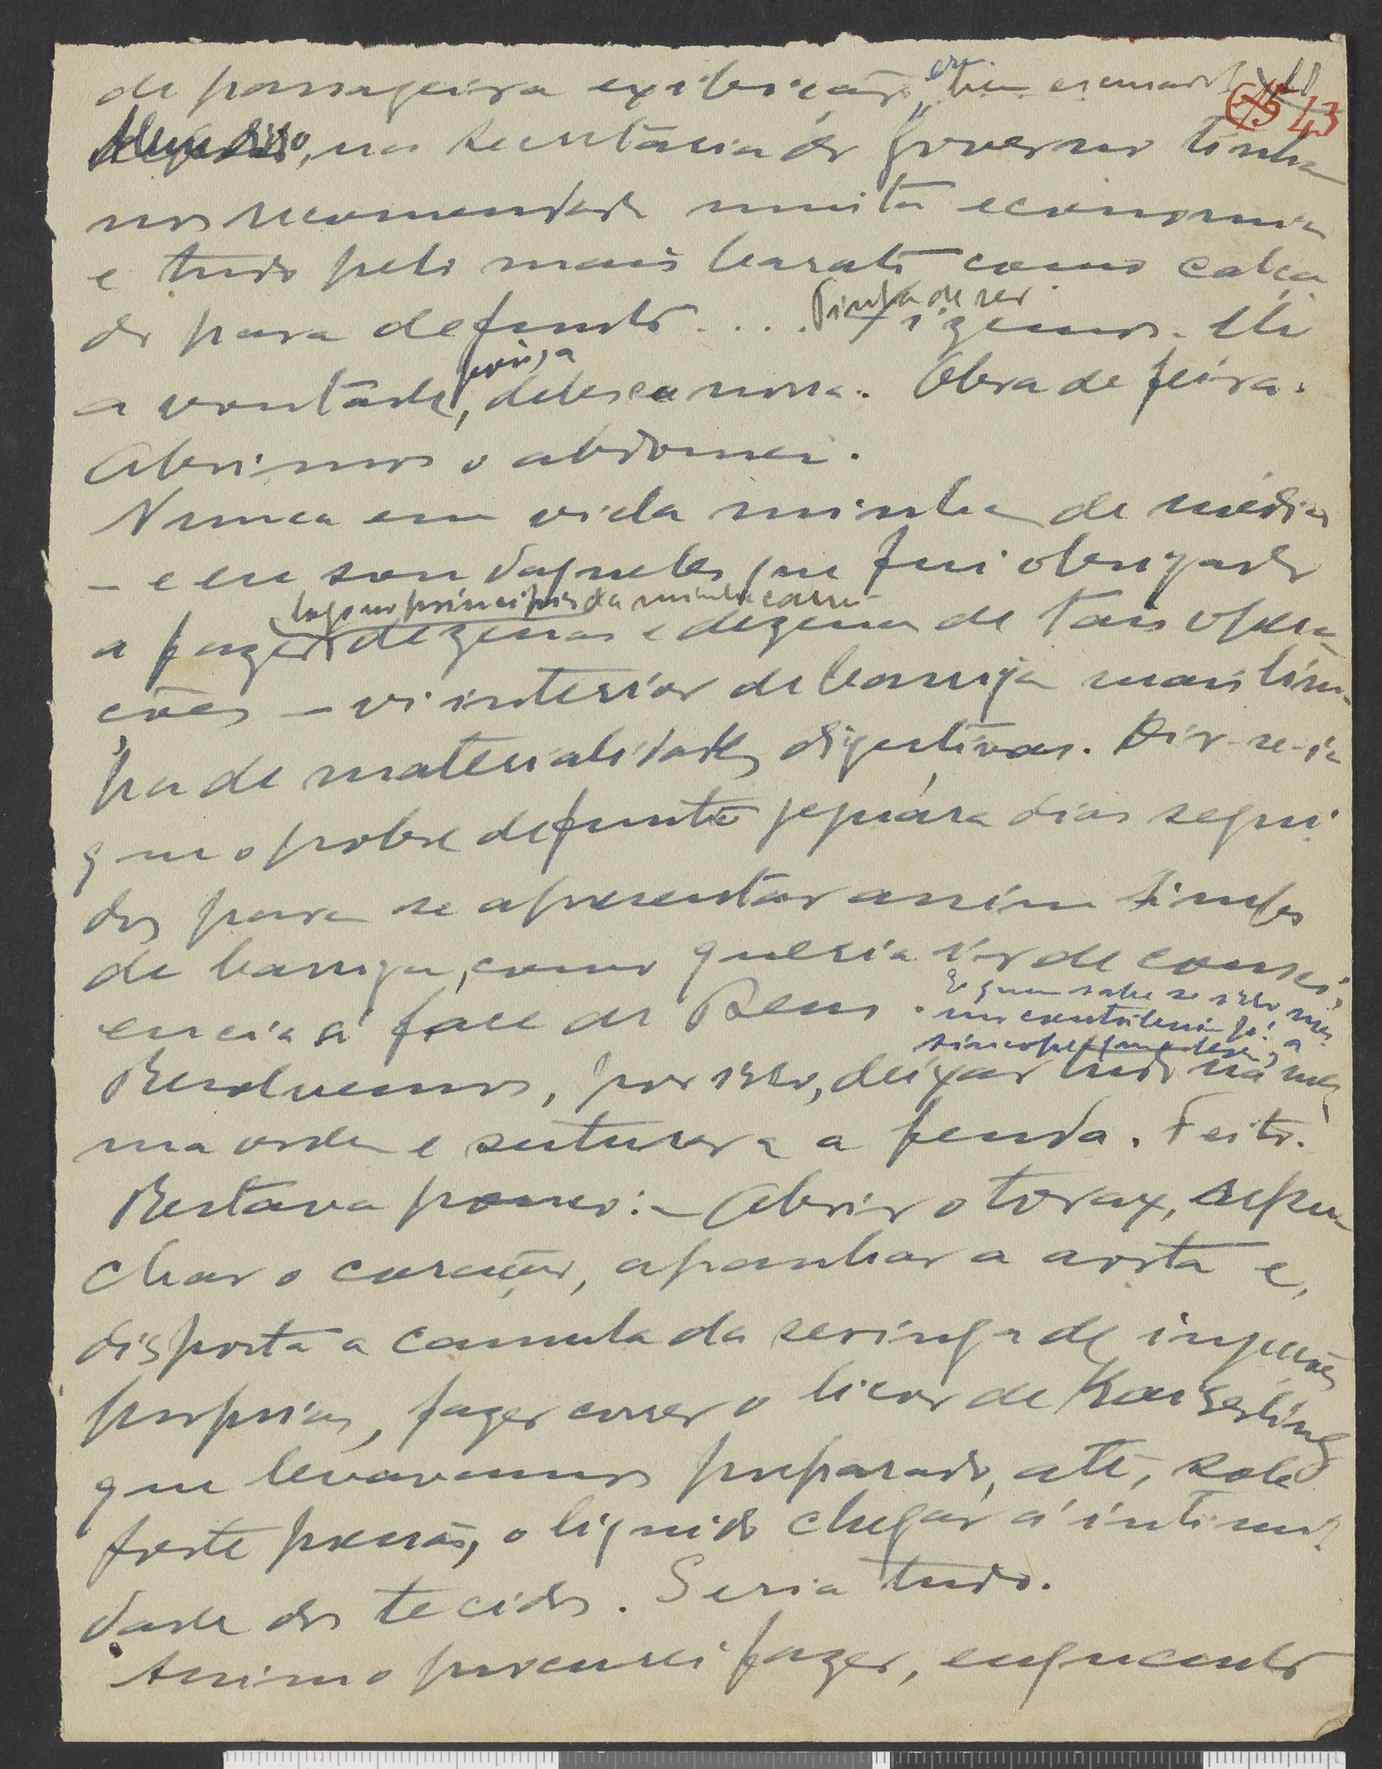 de passageira exibição, era bem escusado 43
Alem disso, na Secretaria do Governo tinham
nos recomendado muita economia
e tudo pelo mais barato como calça
do para defunto.... Tinha de ser
a vontade, força, do Obra de feira.
Abrimos o abdomen.
Nunca em vida minha de médico
— e eu sou daqueles que fui obrigado
logo no principio da minha carrei
a fazer dezenas e dezenas de tais opera
ções — vi interior de barriga mais lim
pa de materialidades digestivas. Dir-se-ia
que o pobre defunto jejuára dias segui
dos para se apresentar assim limpo
de barriga, como queria ir de consci
encia á face de Deus.
E quem sabe se isso não
contribuiu p.ª a
sincope
Resolvemos, por isso, deixar tudo na mes
ma ordem e suturar a fenda. Feito.
Restava pouco: — Abrir o torax,
char o coração, apanhar a aorta e,
disposta a canula da seringa de injeções
proprias, fazer correr o licor de Kaiserling
que levavamos preparado, até, sob
forte pressão, o liquido chegar á intimi
dade dos tecidos. Seria tudo.
Assim o procurei fazer, enquanto